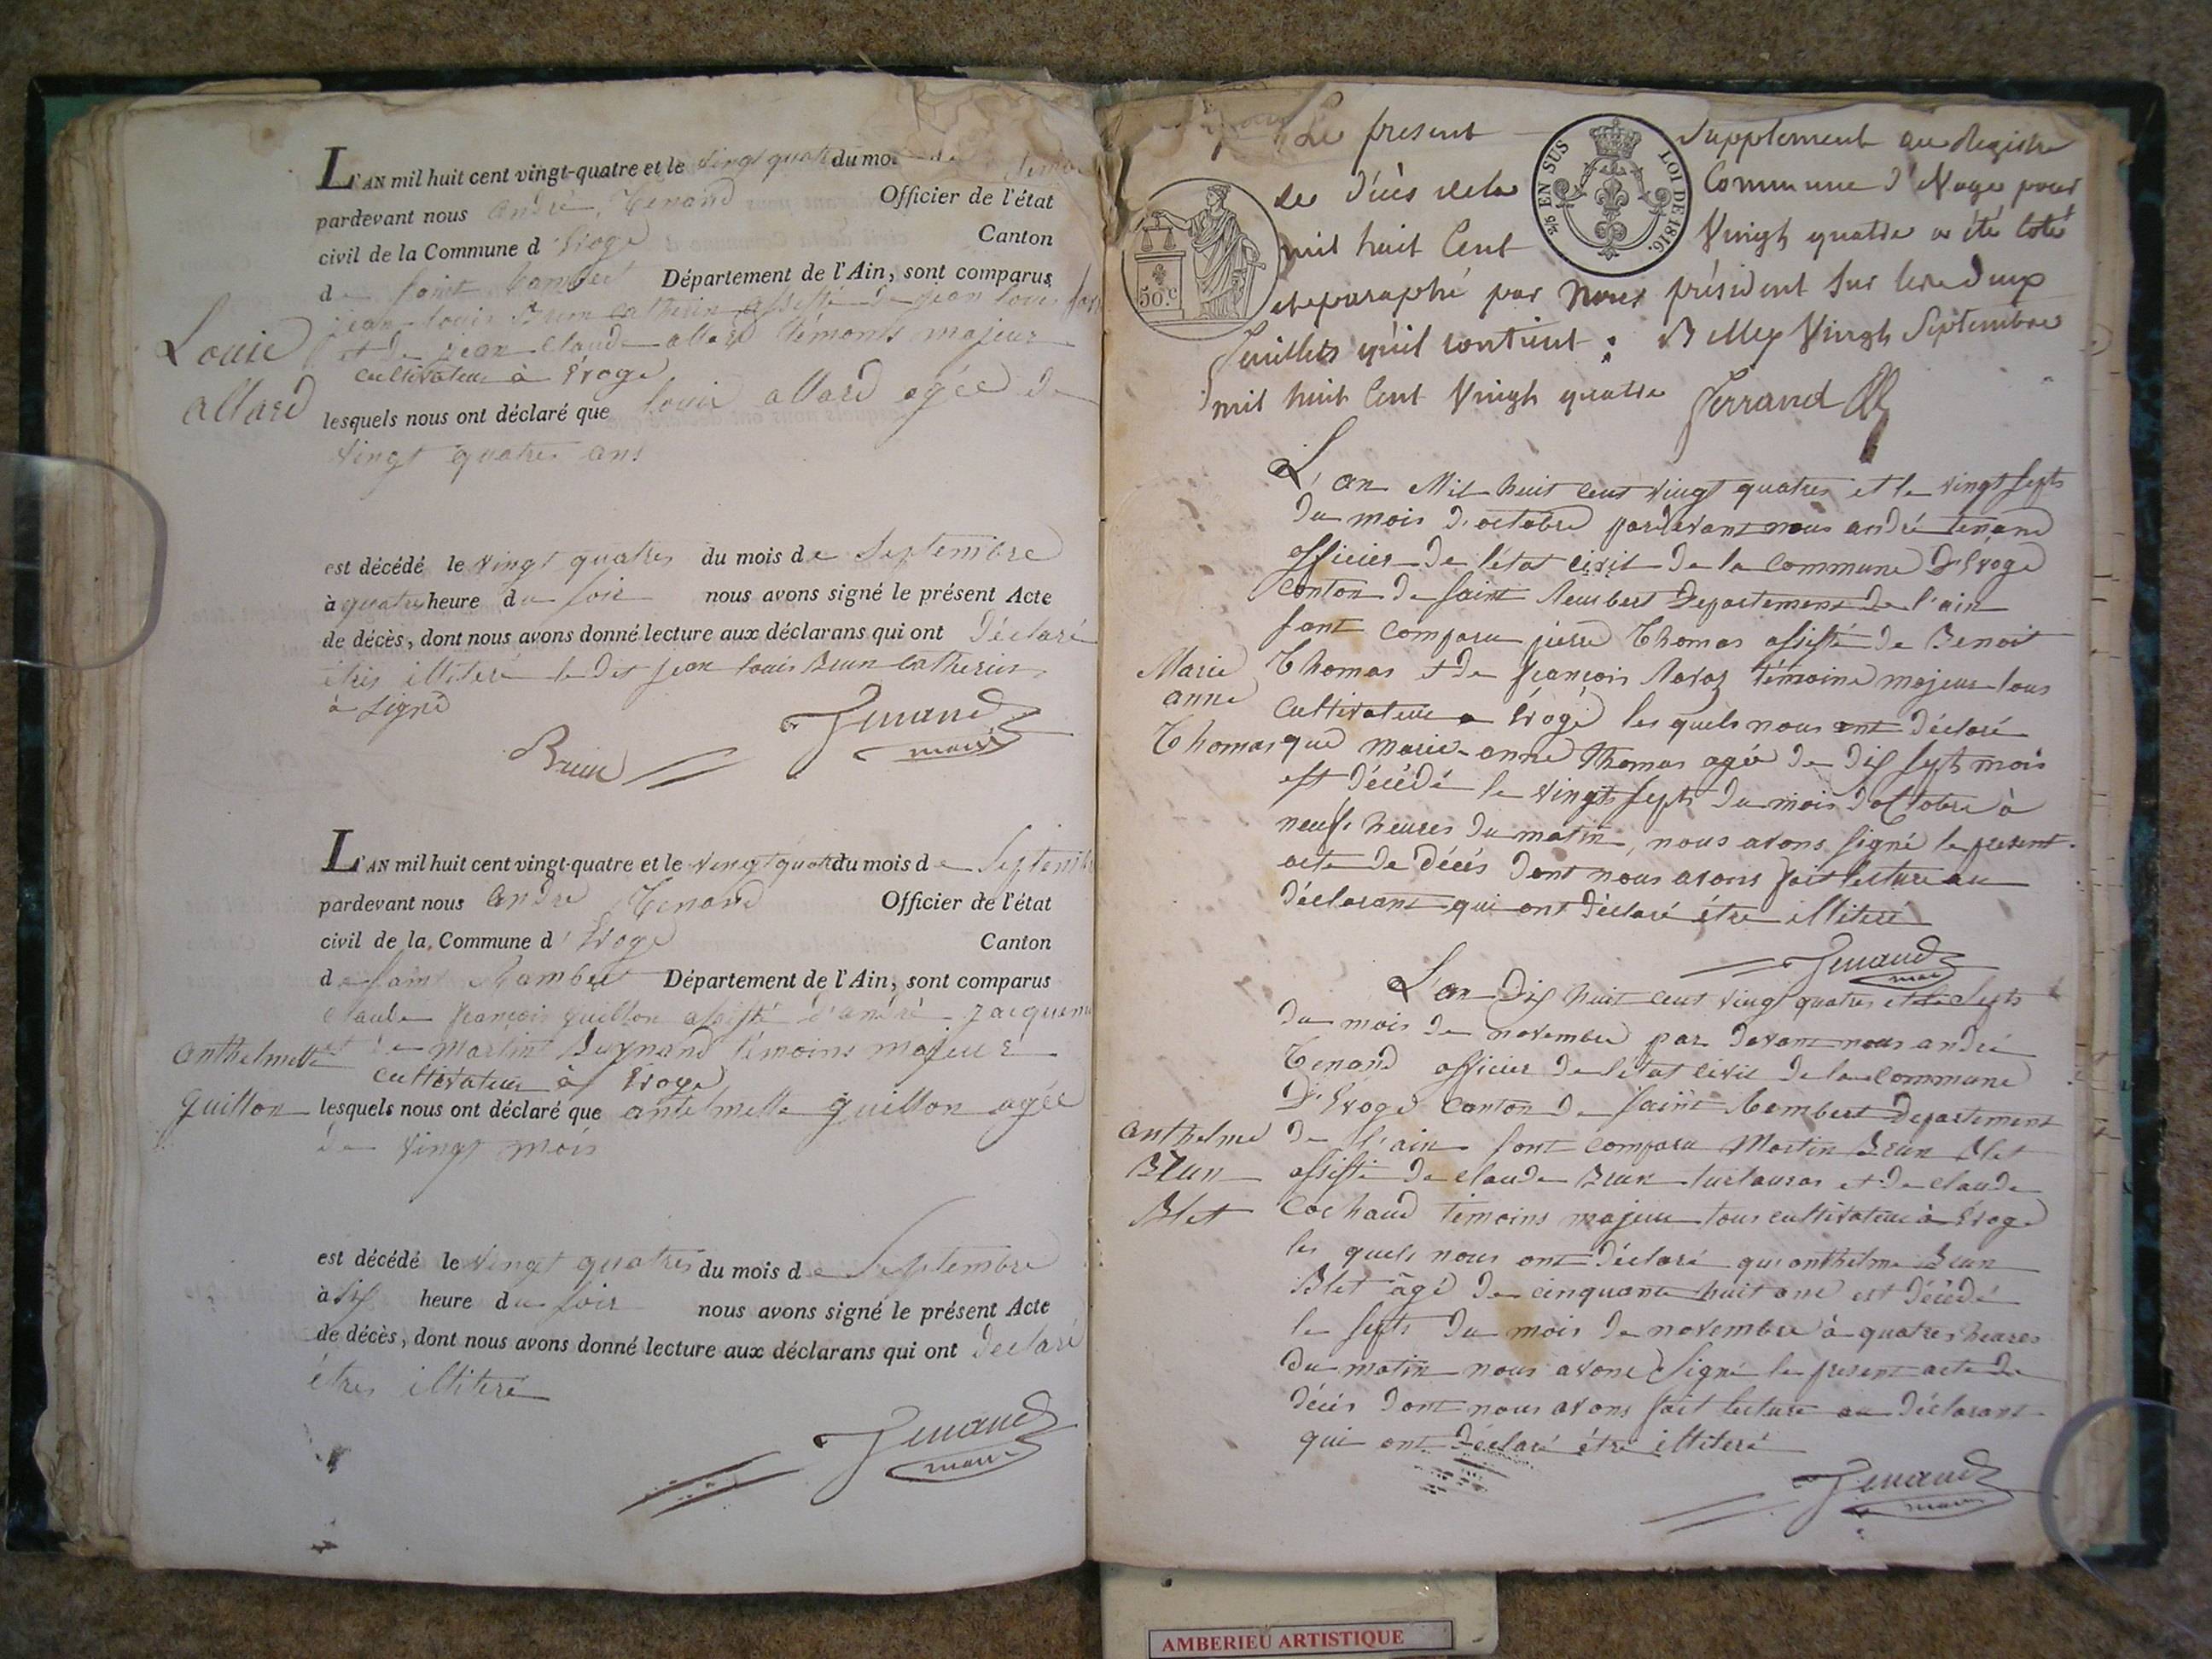 L'AN mil huit cent vingt-quatre et le vingt quatre du mois de
pardevant nous andré Tenand Officier de l'état
civil de la Commune d'Evoge Canton
de saint Rambert Département de l'Ain, sont comparus
jean louis Brun catherin assisté de jean louis
et de jean claude allard témoins majeur
cultivateur à Evoge
Louise
allard
lesquels nous ont déclaré que louise allard agée de
vingt quatres ans
est décédé le vingt quatres du mois de Septembre
à quatres heure du soir nous avons signé le présent Acte
de décès, dont nous avons donné lecture aux déclarans qui ont déclaré
êtres illiteré le dit jean louis Brun catherin
à signé
Brun Tenand
maire
L'AN mil huit cent vingt-quatre et le vingt quatre du mois de Septembre
pardevant nous andré Tenand Officier de l'état
civil de la Commune d'Evoge Canton
de saint Rambert Département de l'Ain, sont comparus
claude françois guillon assisté d'andré
et de martin témoins majeur
cultivateur à Evoge
anthelmette
guillon
lesquels nous ont déclaré que antelmette guillon agée
de vingt mois
est décédé le vingt quatres du mois de Septembre
à six heure du soir nous avons signé le présent Acte
de décès, dont nous avons donné lecture aux déclarans qui ont déclaré
êtres illiteré
Tenand
maire
Le present supplement au Registre
de décès de la Commune d'Evoge pour
mil huit Cent Vingt quatre a été coté
et paraphé par Nous président sur les deux
feuillets qu'il contient : Belley Vingt Septembre
mil huit Cent Vingt quatre Ferrand
1/4 EN SUS LOI DE 1816.
50.c
L'an Mil huit cent vingt quatres et le vingt septs
du mois d'octobre pardevant nous andré tenand
officier de l'état civil de la commune D'Evoge
conton de saint Rembert Departement de l'ain
sont comparu pierre Thomas assisté de Benoit
Thomas et de françois Ravaz témoins majeur tous
cultivateur a Evoge les quels nous ont déclaré
Marie
anne
Thomas
que marie-anne thomas agée de dix septs mois
est décédé le vingts septs du mois d'octobre à
neuf. heures du matin, nous avons signé le present.
acte de décés dont nous avons fait lecture au
déclarant qui ont déclaré être illiteré
Tenand
maire
L'an dix huit cent vingt quatres et le septs
du mois de novembre par devant nous andré
Tenand officier de l'état civil de la commune
D'Evoge Canton de saint Rembert departement
de l'ain sont comparu Martin Brun Blet
anthelme
Brun
Blet
assisté de claude Brun et de claude
Cochand témoins majeur tous cultivateur à Evoge
les quels nous ont déclaré que anthelme Brun
Blet âgé de cinquante huit ans est décédé
le septs du mois de novembre à quatres heures
du matin nous avons signé le present acte de
décés dont nous avons fait lecture au déclarant
qui ont déclaré étre illiteré
Tenand
maire
AMBERIEU ARTISTIQUE